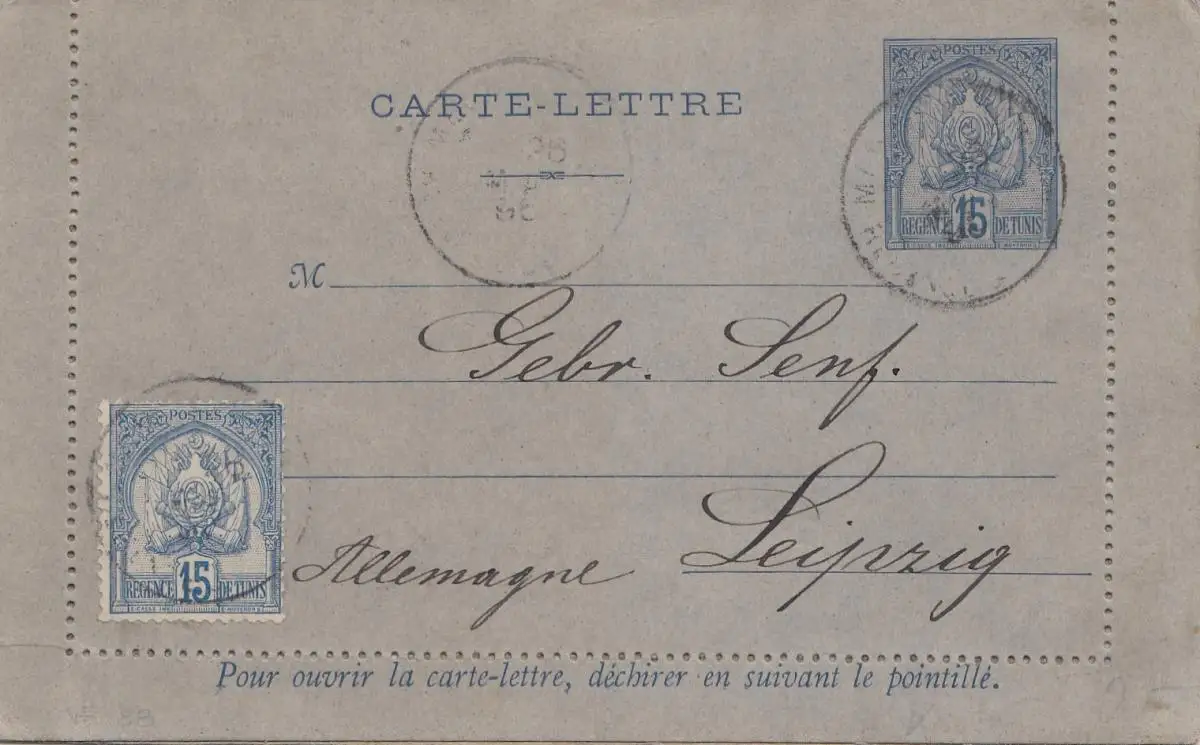 CARTE-LETTRE
POSTES
REGENCE 15 DE TUNIS
M
Gebr. Senf.
Leipzig
Allemagne
POSTES
REGENCE 15 DE TUNIS
Pour ouvrir la carte-lettre, déchirer en suivant le pointillé.